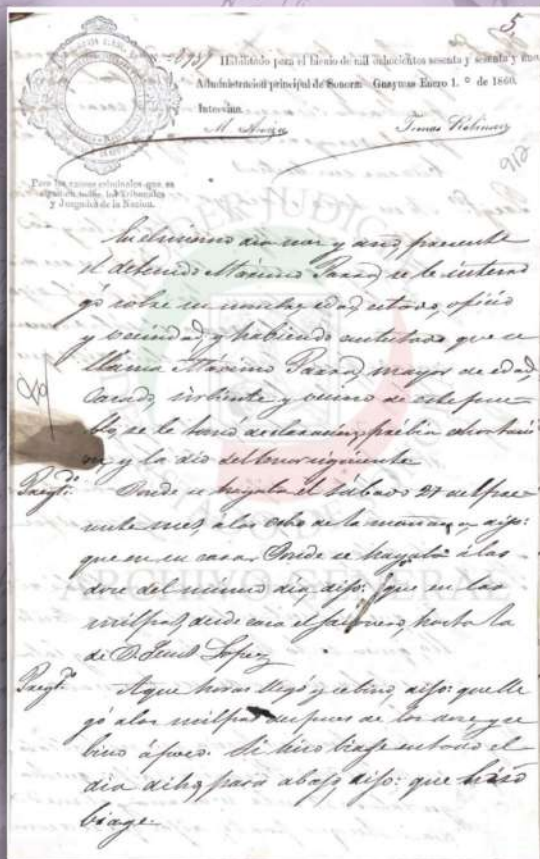 5.
Habilitado para el bienio de mil ochocientos sesenta y sesenta y uno
Administracion principal de Sonora Guaymas Enero 1. º de 1860.
Intervine.
912
Para las causas criminales que se
sigan en todos los Tribunales
y Juzgados de la Nacion.
En el mismo dia mes y año, presente
el detenido Máximo Parra, se le interro
gó sobre su nombre, edad, estado, oficio
y vecindad, y habiendo contestado, que se
llama Máximo Parra, mayor de edad,
Casado, sirbiente y vecino de este pue-
blo, se le tomó declaracion, prebia
y la dió del tenor siguiente
Pregtº. Donde se hayaba el Sábado 27 del pre-
sente mes, a las ocho de la mañana, dijo:
que en su casa. Donde se hayaba a las
doce del mismo dia, dijo: que en las
milpas, desde casa el hasta la
de D. Jesus Lopez
Pregtº. A que horas llegó y se bino, dijo: que lle
gó a las milpas despues de las doce y se
bino á poco. Si hiso biage en todo el
dia dicho para abajo dijo: que hiso
biage.
ARCHIVO GENERAL